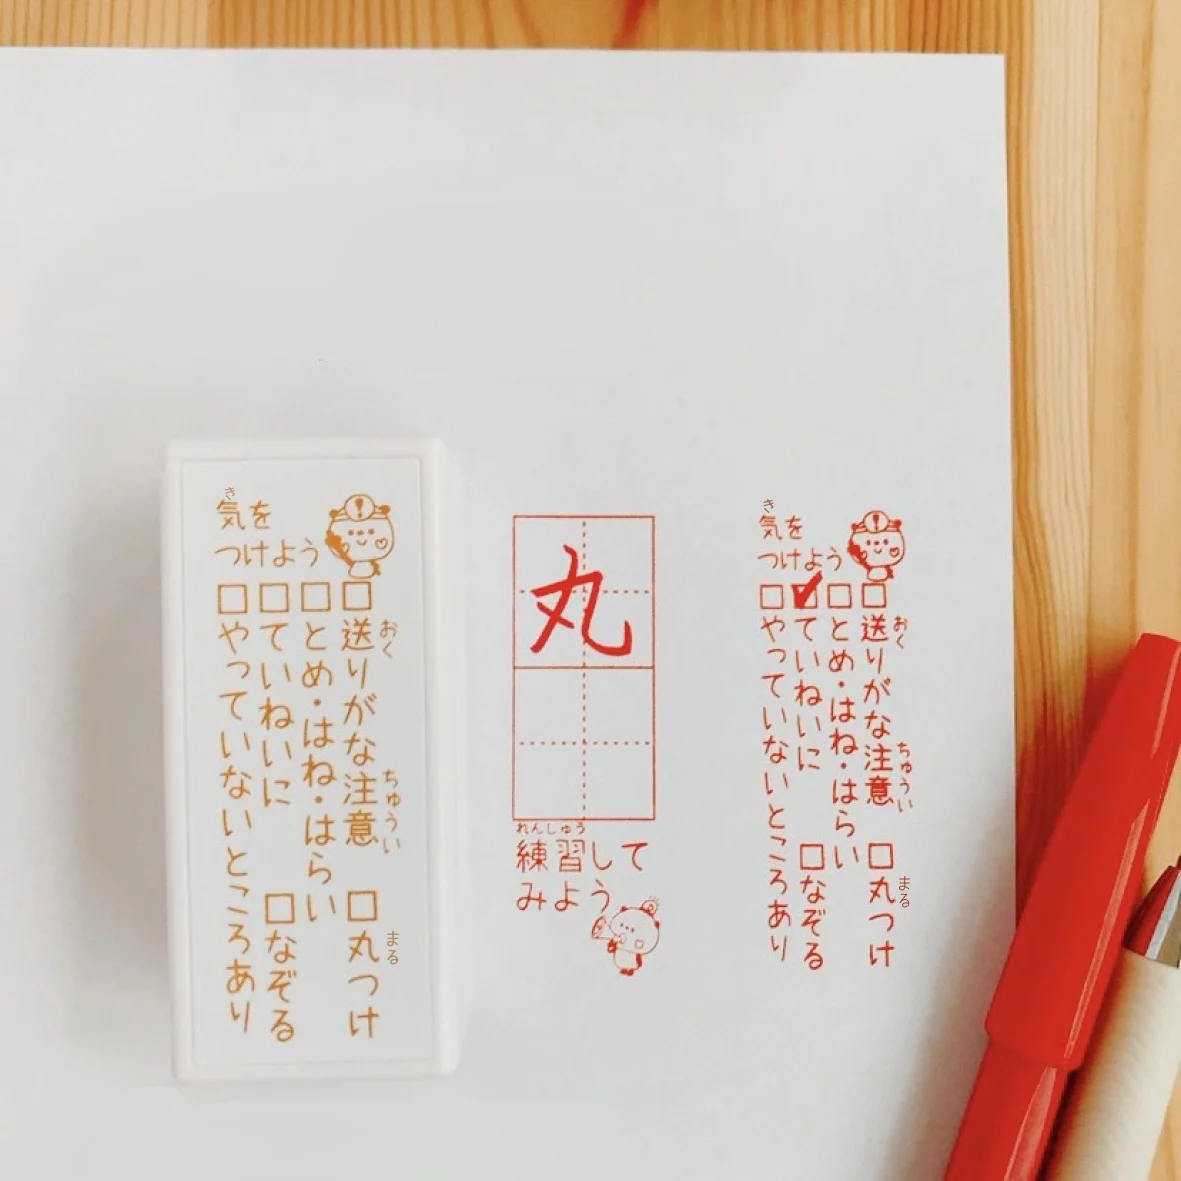 気を
き
つけよう
□送りがな注意 □丸つけ
おく ちゅうい まる
□とめ・はね・はらい
□ていねいに □なぞる
□やっていないところあり
丸
れんしゅう
練習して
みよう
気を
き
つけよう
□送りがな注意 □丸つけ
おく ちゅうい まる
□とめ・はね・はらい
☑ていねいに □なぞる
□やっていないところあり